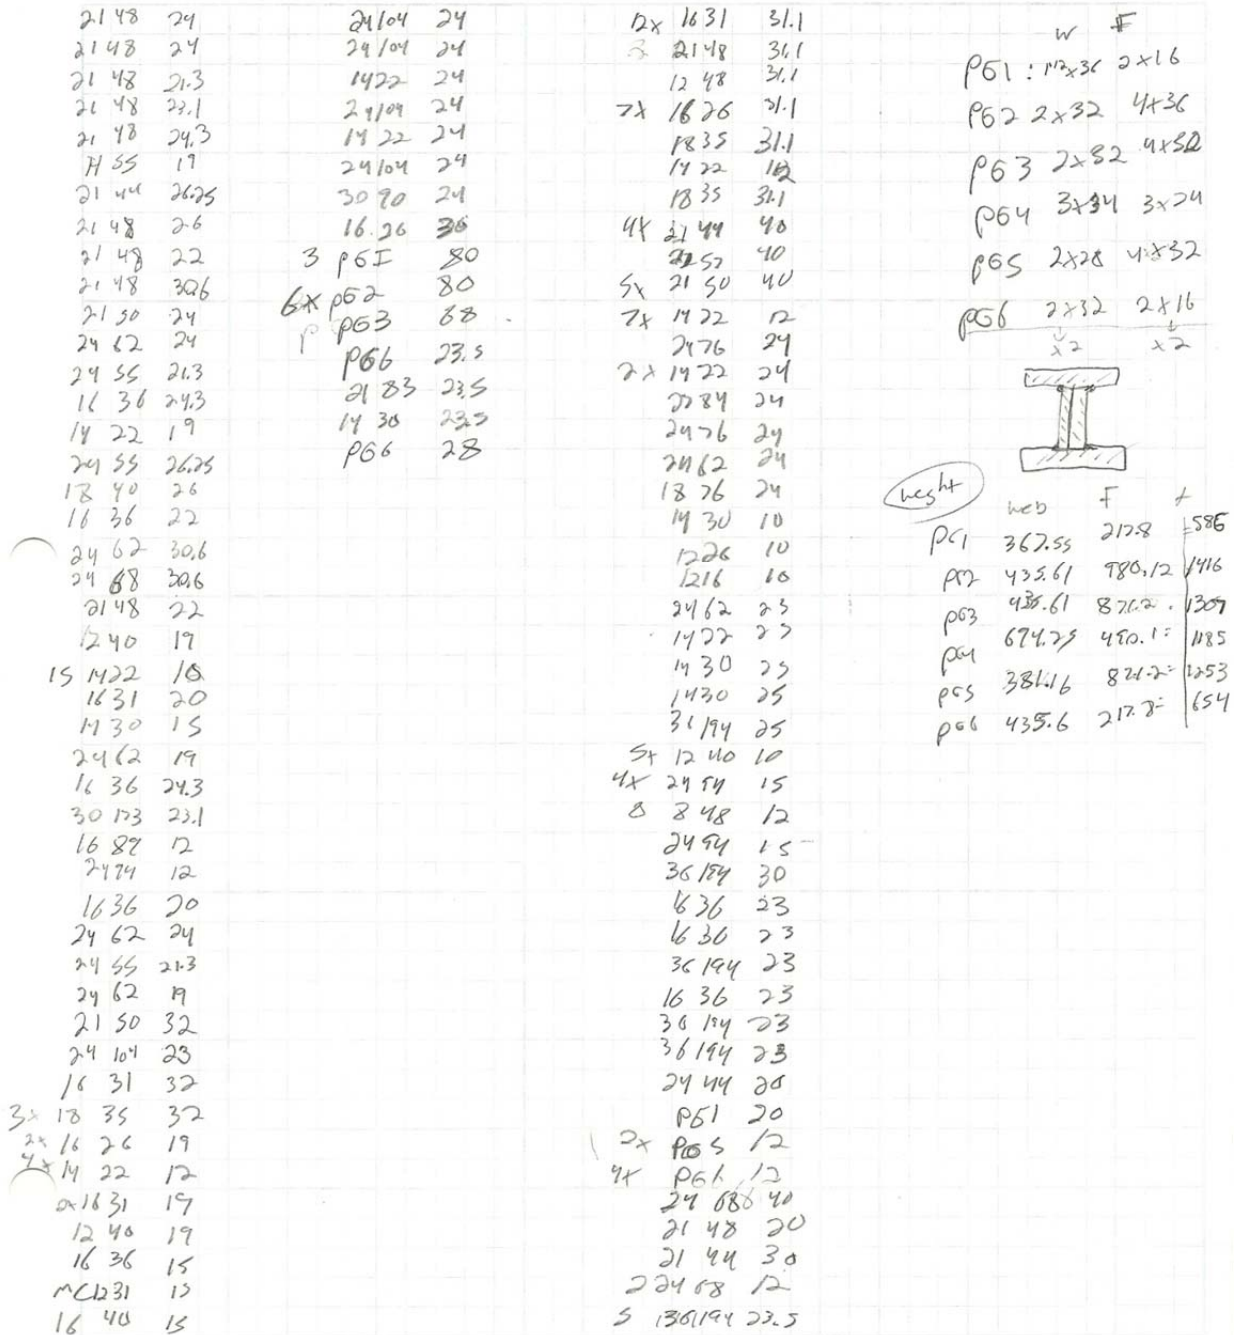 21 48 24
21 48 24
21 48 21.3
21 48 23.1
21 48 24.3
55 19
21 44 26.25
21 48 26
21 48 22
21 48 30.6
21 50 24
24 62 24
24 55 21.3
16 36 24.3
14 22 19
24 55 26.25
18 40 26
16 36 22
24 62 30.6
24 68 30.6
21 48 22
12 40 19
15 1422 10
1631 20
14 30 15
24 62 19
16 36 24.3
30 173 23.1
16 89 12
24 94 12
16 36 20
24 62 24
24 55 21.3
24 62 19
21 50 32
24 104 23
16 31 32
3x 18 35 32
2x 16 26 19
4x 14 22 12
2x 16 31 19
12 40 19
16 36 15
MC1231 15
16 40 15
24104 24
24104 24
1422 24
24104 24
14 22 24
24104 24
30 90 24
16 26 30
3 PG1 80
6x PG2 80
PG3 68
PG6 23.5
21 83 23.5
14 30 23.5
PG6 28
12x 1631 31.1
2148 31.1
12 48 31.1
7x 1626 31.1
1835 31.1
1422
1835 31.1
4x 21 44 40
57 40
5x 21 50 40
7x 1422 12
2476 24
2x 1422 24
2784 24
2476 24
2462 24
18 76 24
14 30 10
1226 10
1216 10
2462 23
1422 23
14 30 25
1430 25
36194 25
5x 12 40 10
4x 24 94 15
8 8 48 12
2494 15
36194 30
1636 23
1636 23
36194 23
16 36 23
36194 23
36194 23
24 44 20
PG1 20
2x PG5 12
4x PG6 12
24 68 40
21 48 20
21 44 30
2 24 68 12
5 36194 23.5
W F
PG1 : 1 1/2x36 2x16
PG2 2x32 4x36
PG3 2x32
PG4 3x34 3x24
PG5 2x28 4x32
PG6 2x32 2x16
x2 x2
weight
web F
PG1 367.55 217.8 =586
PG2 435.61 980.12 1416
PG3 435.61 871.2 1307
PG4 694.25 490.1= 1185
PG5 381.16 871.2= 1253
PG6 435.6 217.8= 654